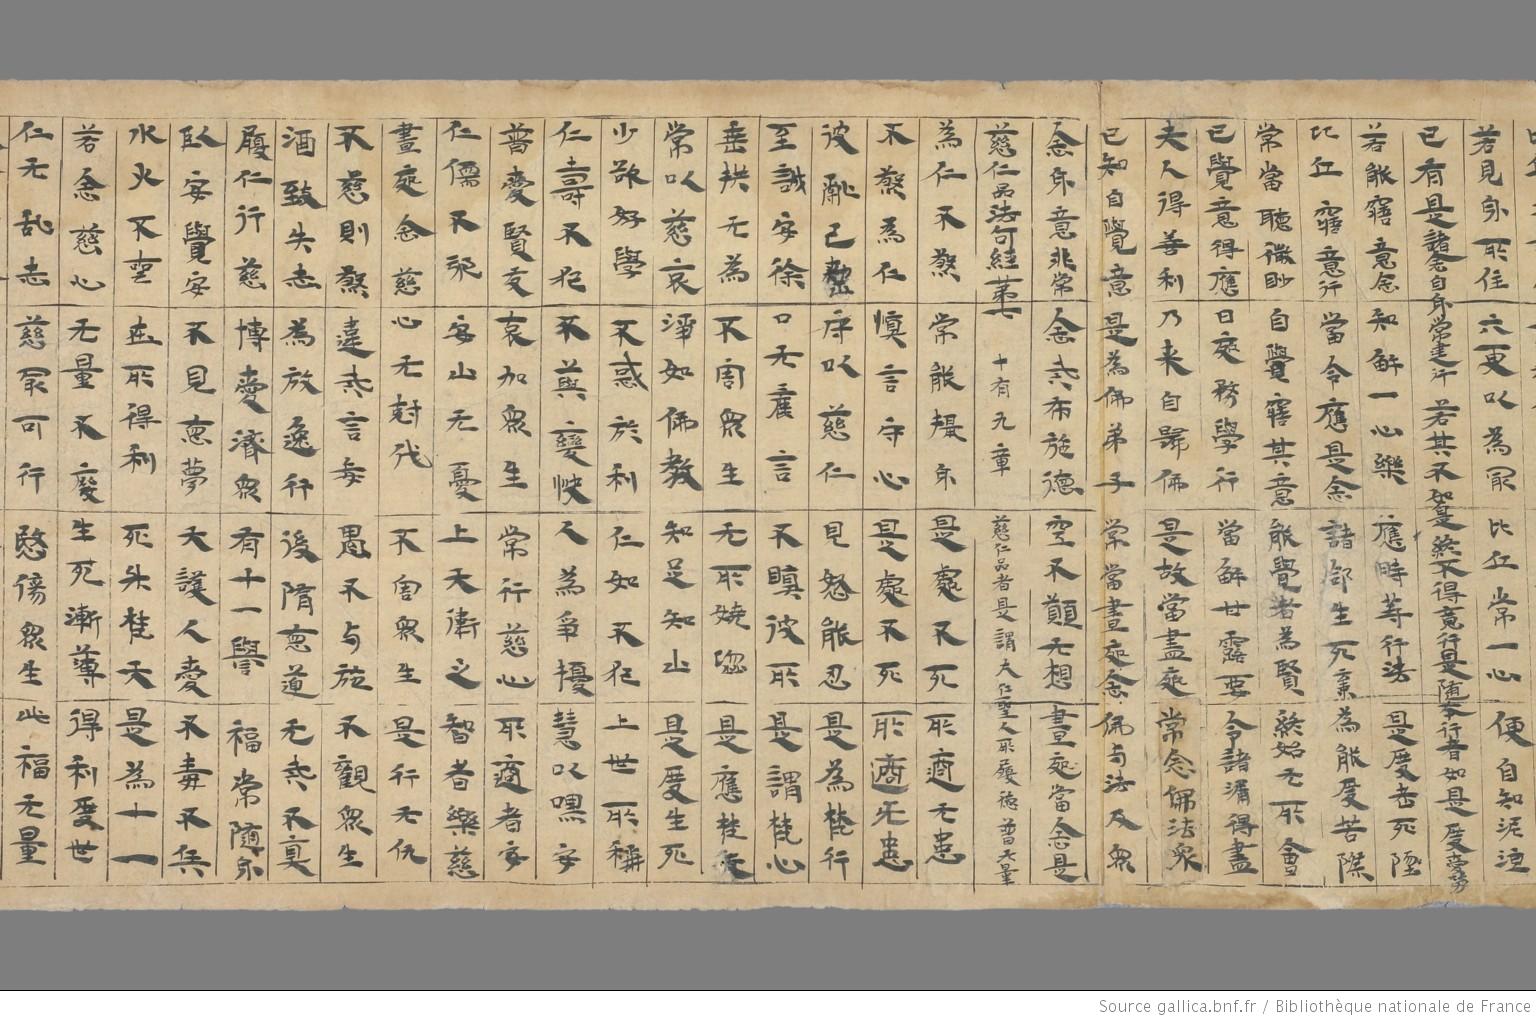 若見身所住 六更以為冣 比丘常一心 便自知泥洹
已有是諸念自身常建行 若其不如是 終不得意行 是隨本行者 如是度愛勞
若能寤意念 知解一心樂 應時等行法 是度老死
比丘寤意行 當令應是念 諸卻生死棄 為能度苦際
常當聽微妙 自覺寤其意 能覺者為賢 終始无所會
已覺意得應 日夜務學行 當解甘露要 令諸漏得盡
夫人得善利 乃來自歸佛 是故當晝夜 常念佛法眾
已知自覺意 是為佛弟子 常當晝夜念 佛与法及眾
念身意非常 念戒布施德 空不願无想 晝夜當念是
慈仁品法句經第七 十有九章 慈仁品者是謂大仁聖人所履德普无量
為仁不煞 常能攝身 是處不死 所適无患
不煞為仁 慎言守心 是處不死 所適无患
彼亂已整 守以慈仁 見怒能忍 是為梵行
至誠安徐 口无麁言 不瞋彼所 是謂梵心
垂拱无為 不害眾生 无所嬈惱 是應梵天
常以慈哀 淨如佛教 知足知止 是度生死
少欲好學 不惑於利 仁如不犯 上世所稱
仁壽不犯 不興變怏 人為爭擾 慧以嘿安
普愛賢友 哀加眾生 常行慈心 所適者安
仁儒不邪 安止无憂 上天衛之 智者樂慈
晝夜念慈 心无尅伐 不害眾生 是行无仇
不慈則煞 違戒言妄 愚不与施 不觀眾生
酒致失志 為放逸行 後墮惡道 无戒不真
履仁行慈 博愛濟眾 有十一譽 福常隨身
臥安覺安 不見惡夢 天護人愛 不毒不兵
水火不喪 在所得利 死升梵天 是為十一
若念慈心 无量不廢 生死漸薄 得利度世
仁无乱志 慈冣可行 愍傷眾生 此福无量
Source gallica.bnf.fr / Bibliothèque nationale de France